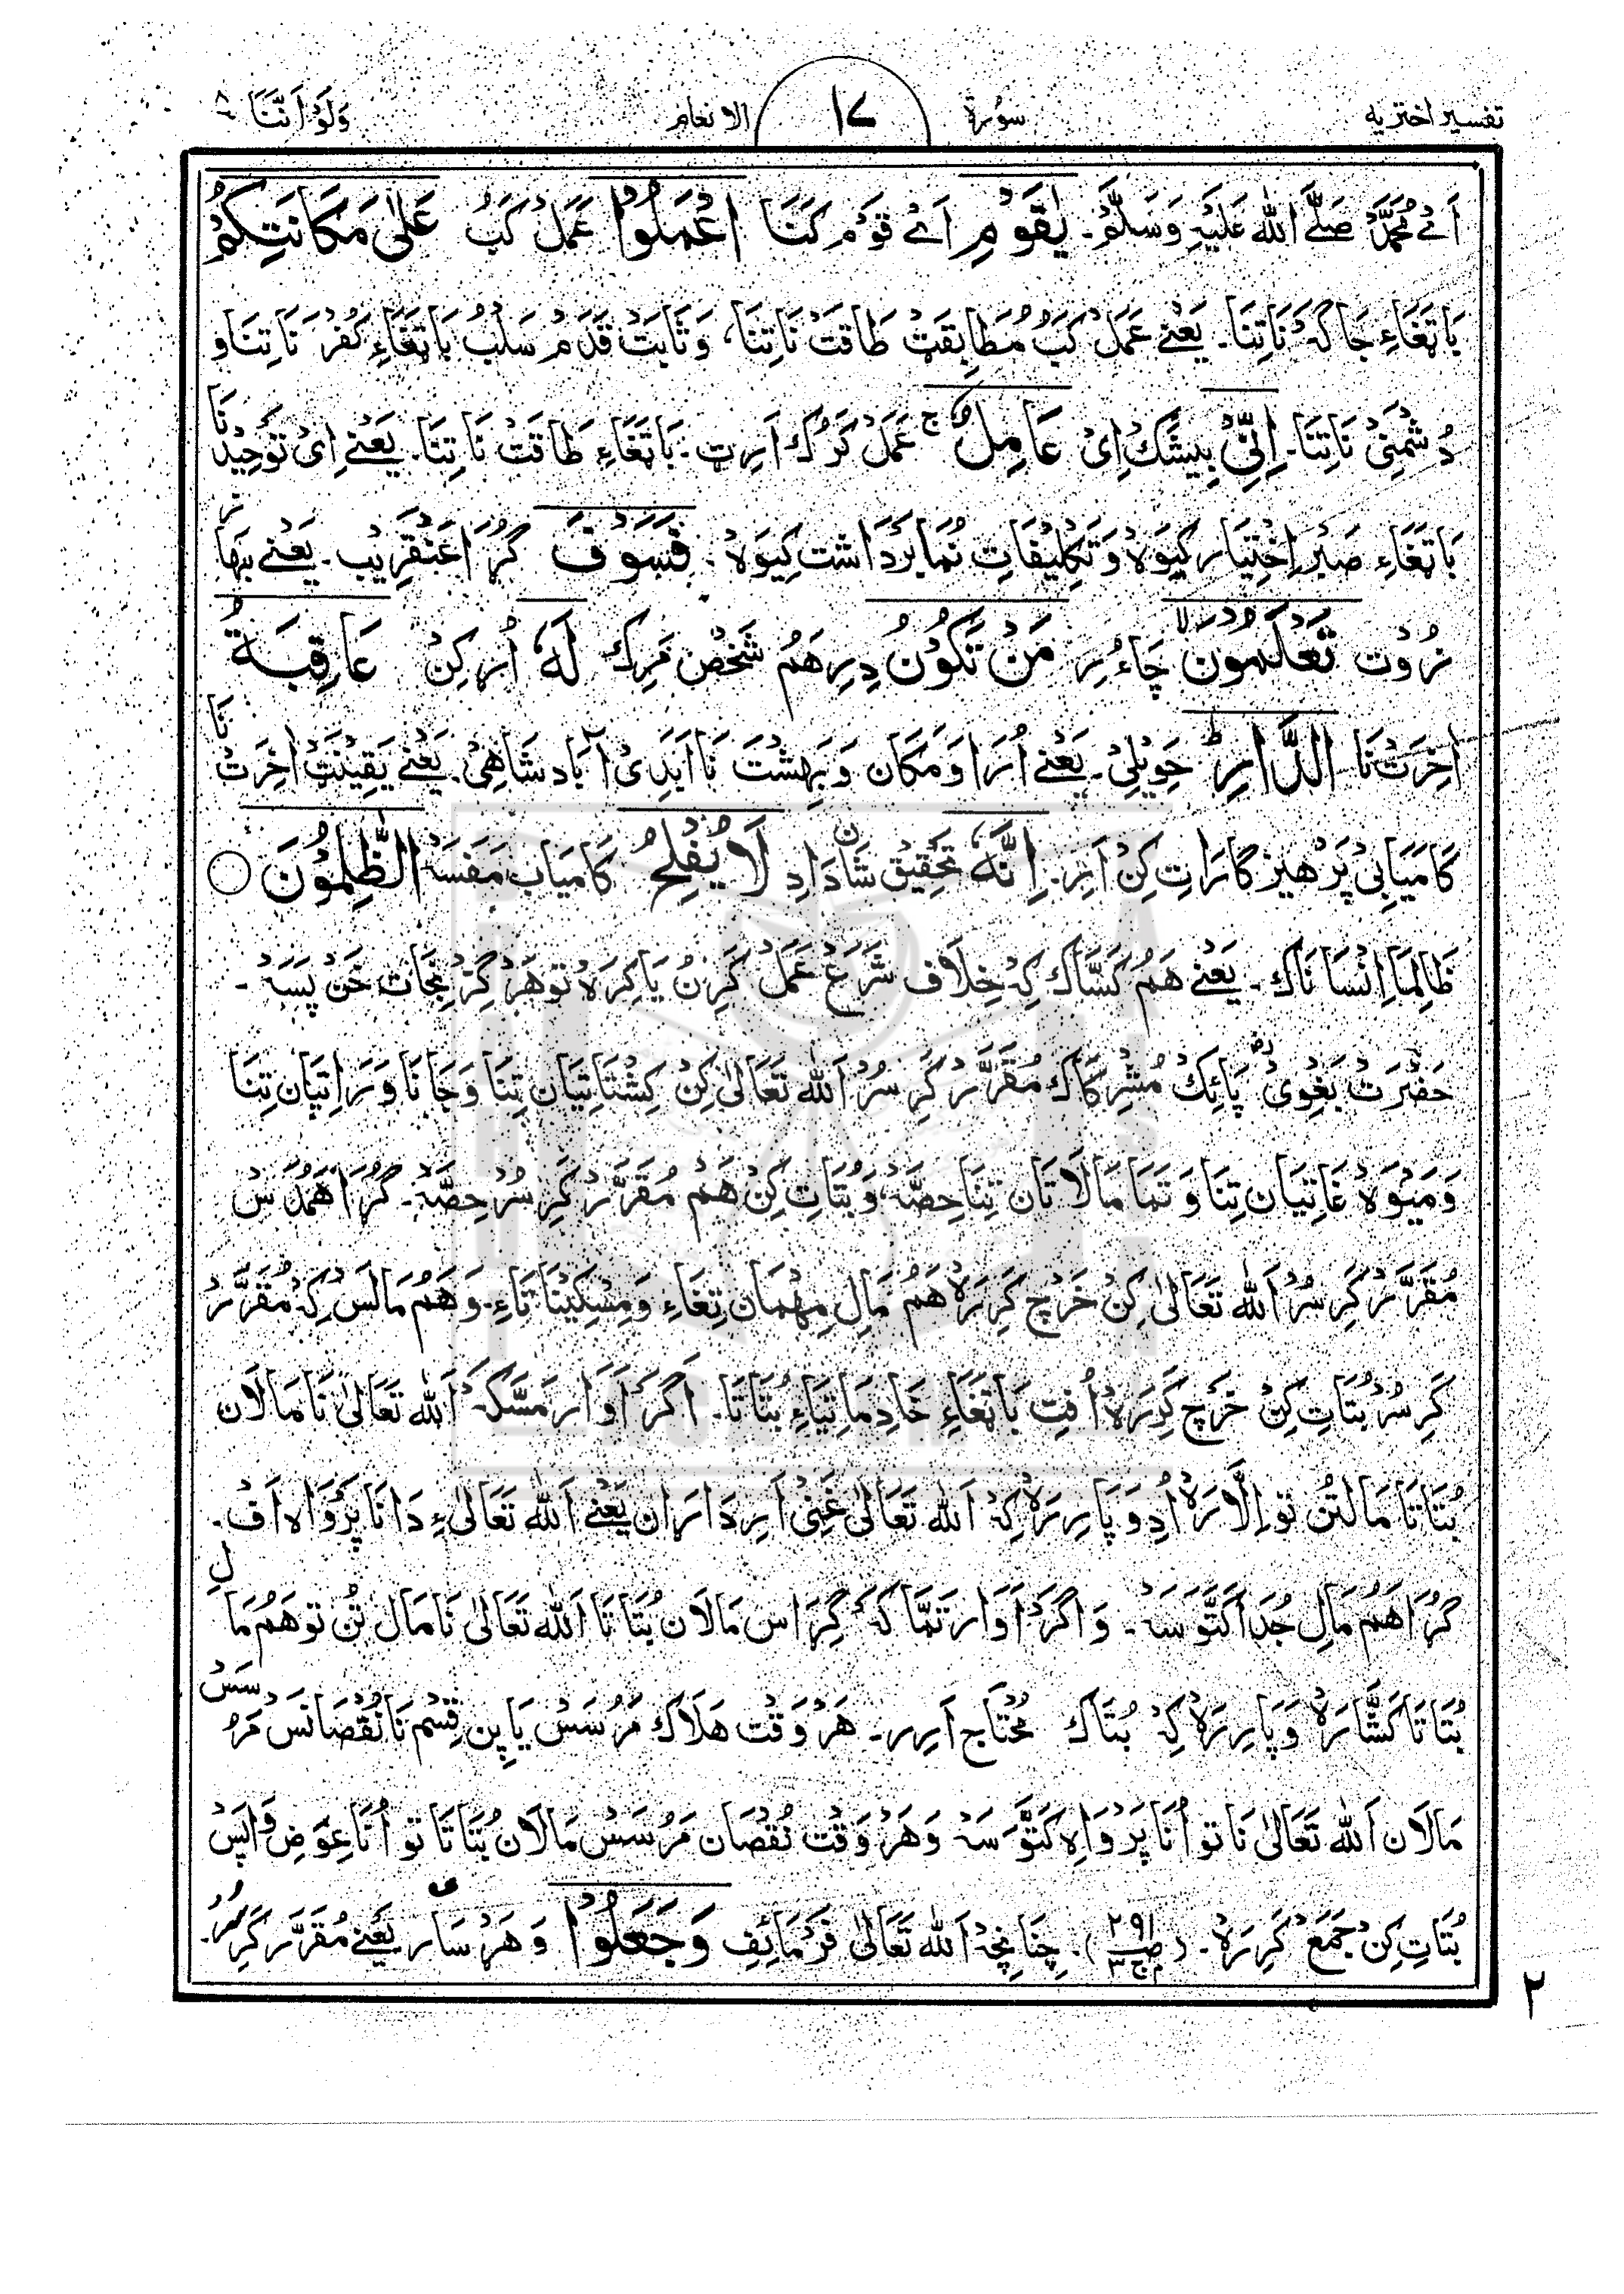 تفسیر اختریه سُورة ١٧ الانعام وَلَوْ اَنَّنَا ٨
اَئے مُحَمَّدْ صَلَّے اللّٰه عَلَیْهِ وَسَلَّمْ۔ یٰقَوْمِ اَئے قَوْم کَنَا اعْمَلُوْا عَمَلْ کَبْ عَلٰی مَکَانَتِکُمْ
بَاتِغَاءِ جَاگَهْ نَاتِنَا۔ یَعْنے عَمَلْ کَبْ مُطَابِقَتْ طَاقَتْ نَاتِنَا، وَثَابَتْ قَدَمْ سَلْبْ بَاتِغَاءِ کُفْر نَاتِنَا و
دُشْمَنِیْ نَاتِنَا۔ اِنِّیْ بِیْشَکْ اِیْ عَامِلٌ ج عَمَلْ کَرُکْ اَرِتْ۔ بَاتِغَاءِ طَاقَتْ نَاتِنَا۔ یَعْنے اِیْ تَوْحِیْد نَا
بَاتِغَاءِ صَبْر اِخْتِیَار کِیْوَهْ وَتَکْلِیْفَاتِ نُمَا بَرْدَاشت کِیْوَهْ۔ فَسَوْفَ گُرَا عَنْقَرِیْب۔ یَعْنے بَهَا ز
زُوْت تَعْلَمُوْنَ لا چَاءُ رِ مَنْ تَکُوْنُ دِرِهَمْ شَخْصْ مَرِکْ لَهٗ اُرْکِنْ عَاقِبَةُ
اٰخِرَتْ نَا الدَّارِ ط حَوِیْلِیْ۔ یَعْنے اُرَا وَمَکَان وَبَهِشْت نَا اَبَدِیْ آبَاد شَاهِیْ۔ یَعْنے یَقِیْنَتْ اٰخِرَتْ نَا
کَامْیَابِیْ پَرْهِیْزگَارَاتِ کِنْ اَرِ۔ اِنَّهٗ تَحْقِیْق شَانْ دَادِ لَا یُفْلِحُ کَامْیَاب مَفَسَهْ الظّٰلِمُوْنَ ○
ظَالِمَا اِنْسَانَاکْ۔ یَعْنے هَمْ کَسَّاکْ کِهْ خِلَاف شَرَعْ عَمَلْ کَرِنُ یَا کِرَهْ تو هَرْگِزْ نِجَاتْ خَنْ پَسَهْ۔
حَضْرَتْ بَغْوِیْ رض پَائِکْ مُشْرِکَاکْ مُقَرَّرْ کَرِسُرْ اَللّٰه تَعَالٰی کِنْ کِشْتَاتِیَان تِنَا وَجَانَا وَرَاتِیَان تِنَا
وَمَیْوَهْ غَاتِیَان تِنَا وَتَمَا مَالَاتَان تِنَا حِصَّهْ، وَبُتَاتِ کِنْ هَمْ مُقَرَّرْ کَرِسُرْ حِصَّهْ۔ گُرَا هَمُدْسْ
مُقَرَّرْ کَرِسُرْ اَللّٰه تَعَالٰی کِنْ خَرْچ کَرِرَهْ هَمْ مَالِ مِهْمَان تِغَاءِ وَمِسْکِیْنَا تَاءِ۔ وَهَمْ مَالَسْ کِهْ مُقَرَّرْ
کَرِسُرْ بُتَاتِ کِنْ خَرْچ کَرِرَهْ اُفِتِ بَاتِغَاءِ خَادِمَاتِیَاءِ بُتَاتَا۔ اَگَرْ اَوَار مَسَّکَهْ اَللّٰه تَعَالٰی نَا مَالَان
بُتَاتَا مَالَتُن تو اِلَّارَهْ اُدِ وَپَارِرَهْ کِهْ اَللّٰه تَعَالٰی غَنِیْ اَرِ دَارَان یَعْنے اَللّٰه تَعَالٰیءِ دَانَا پَرْوَاه اَفْ۔
گُرَا هَمْ مَالِ جُدَا کَتَّوَسَهْ۔ وَاگَرْ اَوَار تَمَّاکَهْ گِرَاس مَالَان بُتَاتَا اَللّٰه تَعَالٰی نَا مَال تُن تو هَمْ مَا لِ
بُتَاتَا کَشَّارَهْ وَپَارِرَهْ کِهْ بُتَاکْ مُحْتَاج اَرِر۔ هَرْ وَقْت هَلَاکْ مَرُسَسْ یَا پِن قِسْم نَا نُقْصَانَسْ مَرُ سَسْ
مَالَان اَللّٰه تَعَالٰی نَا تو اُنَا پَرْوَاهِ کَتَّوَسَهْ وَهَرْ وَقْت نُقْصَان مَرُسَسْ مَالَان بُتَاتَا تو اُنَا عِوَض وَاپَسْ
بُتَاتِ کِنْ جَمَعْ کَرِرَهْ۔ (ص ٢٩١ م ج ٣)۔ چِنَانِچَهْ اَللّٰه تَعَالٰی فَرْمَائِفِ وَجَعَلُوْا وَهَرْ سَار یَعْنے مُقَرَّرْ کَرِسُر۔
٢